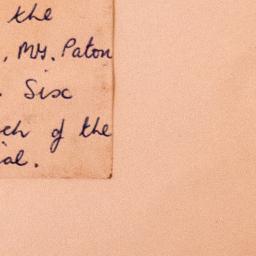 the
, Mr. Paton
. Six
ch of the
ial.